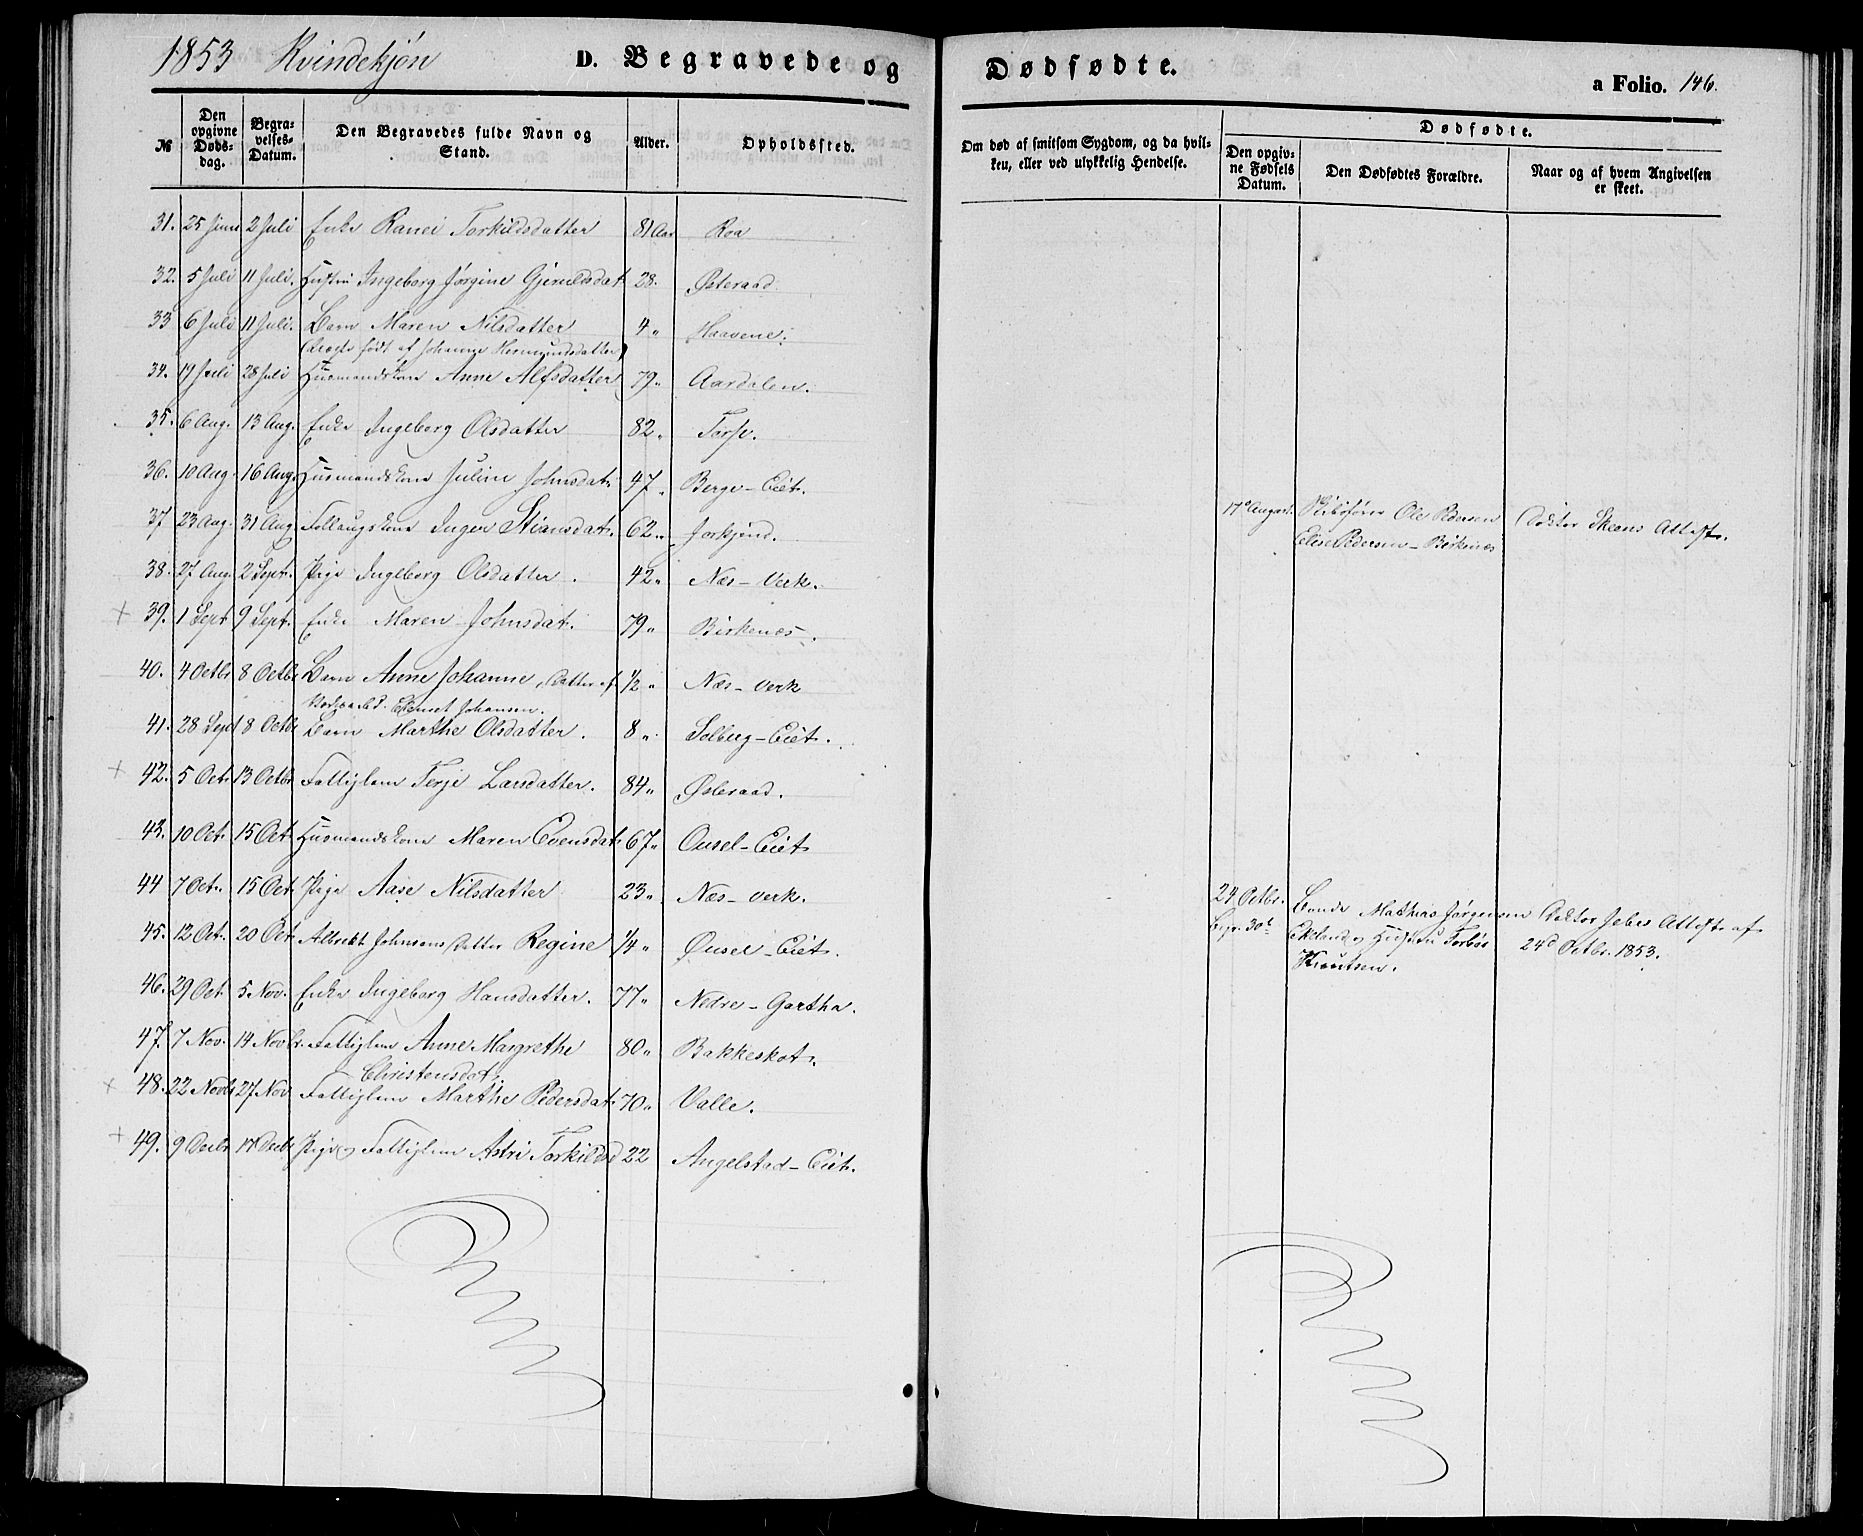 1853 Kvindekjøn D. Begravede og Dødfødte. a Folio. 146.
№ Den opgivne Døds-dag. Begra-velses-Datum. Den Begravedes fulde Navn og Stand. Alder. Opholdssted. Om død af smitsom Sygdom, og da hvil-ken, eller ved ulykkelig Hendelse. Dødfødte. Den opgiv-ne Fødsels Datum. Den Dødfødtes Forældre. Naar og af hvem Angivelsen er skeet.
31. 25 Juni 2 Juli Enke Ranei Torkildsdatter 81 Aar Roa
32. 5 Juli 11 Juli. Hustru Ingeborg Jørgine Gjeruldsdat 28. Østeraad.
33 6 Juli 11 Juli. Barn Maren Nilsdatter 4 " Haavene.
(uægte født af Johanne Hermundsdatter)
34. 19 Juli 28 Juli Husmandskone Anne Alfsdatter 79 " Aardalen.
35. 6 Aug. 13 Aug. Enke Ingeborg Olsdatter 82 "
36. 10 Aug. 16 Aug. Husmandskone Juline Johnsdat. 47 " Berge-Eiet.
37 23 Aug. 31 Aug Follaugskone Inger Stiansdat. 62 " Jorkjend. 17de August. Ole Pedersen Doktor Skeens Attest.
Elise Pedersen - Birkenæs
38. 27 Aug. 2 Sept. Pige Ingeborg Olsdatter. 42 " Næs-Verk.
+ 39. 1 Sept 9 Sept. Enke Maren Johnsdat. 79 " Birkenæs.
40. 4 Octbr 8 Octbr Barn Anne Johanne, Datter af 1/2 " Næs-Verk
Johansen.
41. 28 Sept 8 Octbr Barn Marthe Olsdatter. 8 " Solberg-Eiet.
+ 42. 5 Oct. 13 Octbr Fattiglem Terje Larsdatter. 84 " Østeraad.
43. 10 Oct. 15 Oct. Husmandskone Maren Evensdat. 67 " Ousel-Eiet
44 7 Oct. 15 Oct. Pige Aase Nilsdatter 23 " Næs-Verk. 24 Octbr.
45. 12 Oct. 20 Oct. Albrekt Johnsens Datter Regine 1/4 " Ousel-Eiet. Begr. 30te Bonde Mathias Jørgensen Doktor Attest af
Ekeland og Hustru Torbør 24d Octbr. 1853.
Knutsen.
46. 29 Oct. 5 Nov. Enke Ingeborg Hansdatter. 77 " Nedre-Gartha.
47. 7 Nov. 14 Novbr. Fattiglem Anne Margrethe 80 " Bakkeskot.
Christensdat.
+ 48. 22 Novbr 27 Nov. Fattiglem Marthe Pedersdat. 70 " Valle.
+ 49. 9 Decbr 17 Decbr Pige og Fattiglem Astri Torkildsd 22 Angelstad-Eiet.